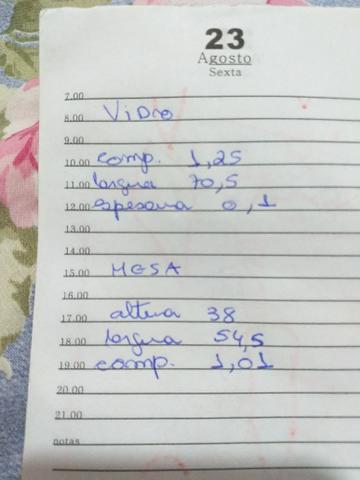 23
Agosto
Sexta
7.00
8.00 Vidro
9.00
10.00 comp. 1,25
11.00 largura 70,5
12.00 espesura 0,1
13.00
14.00
15.00 MESA
16.00
17.00 altura 38
18.00 largura 54,5
19.00 comp. 1,01
20.00
21.00
notas